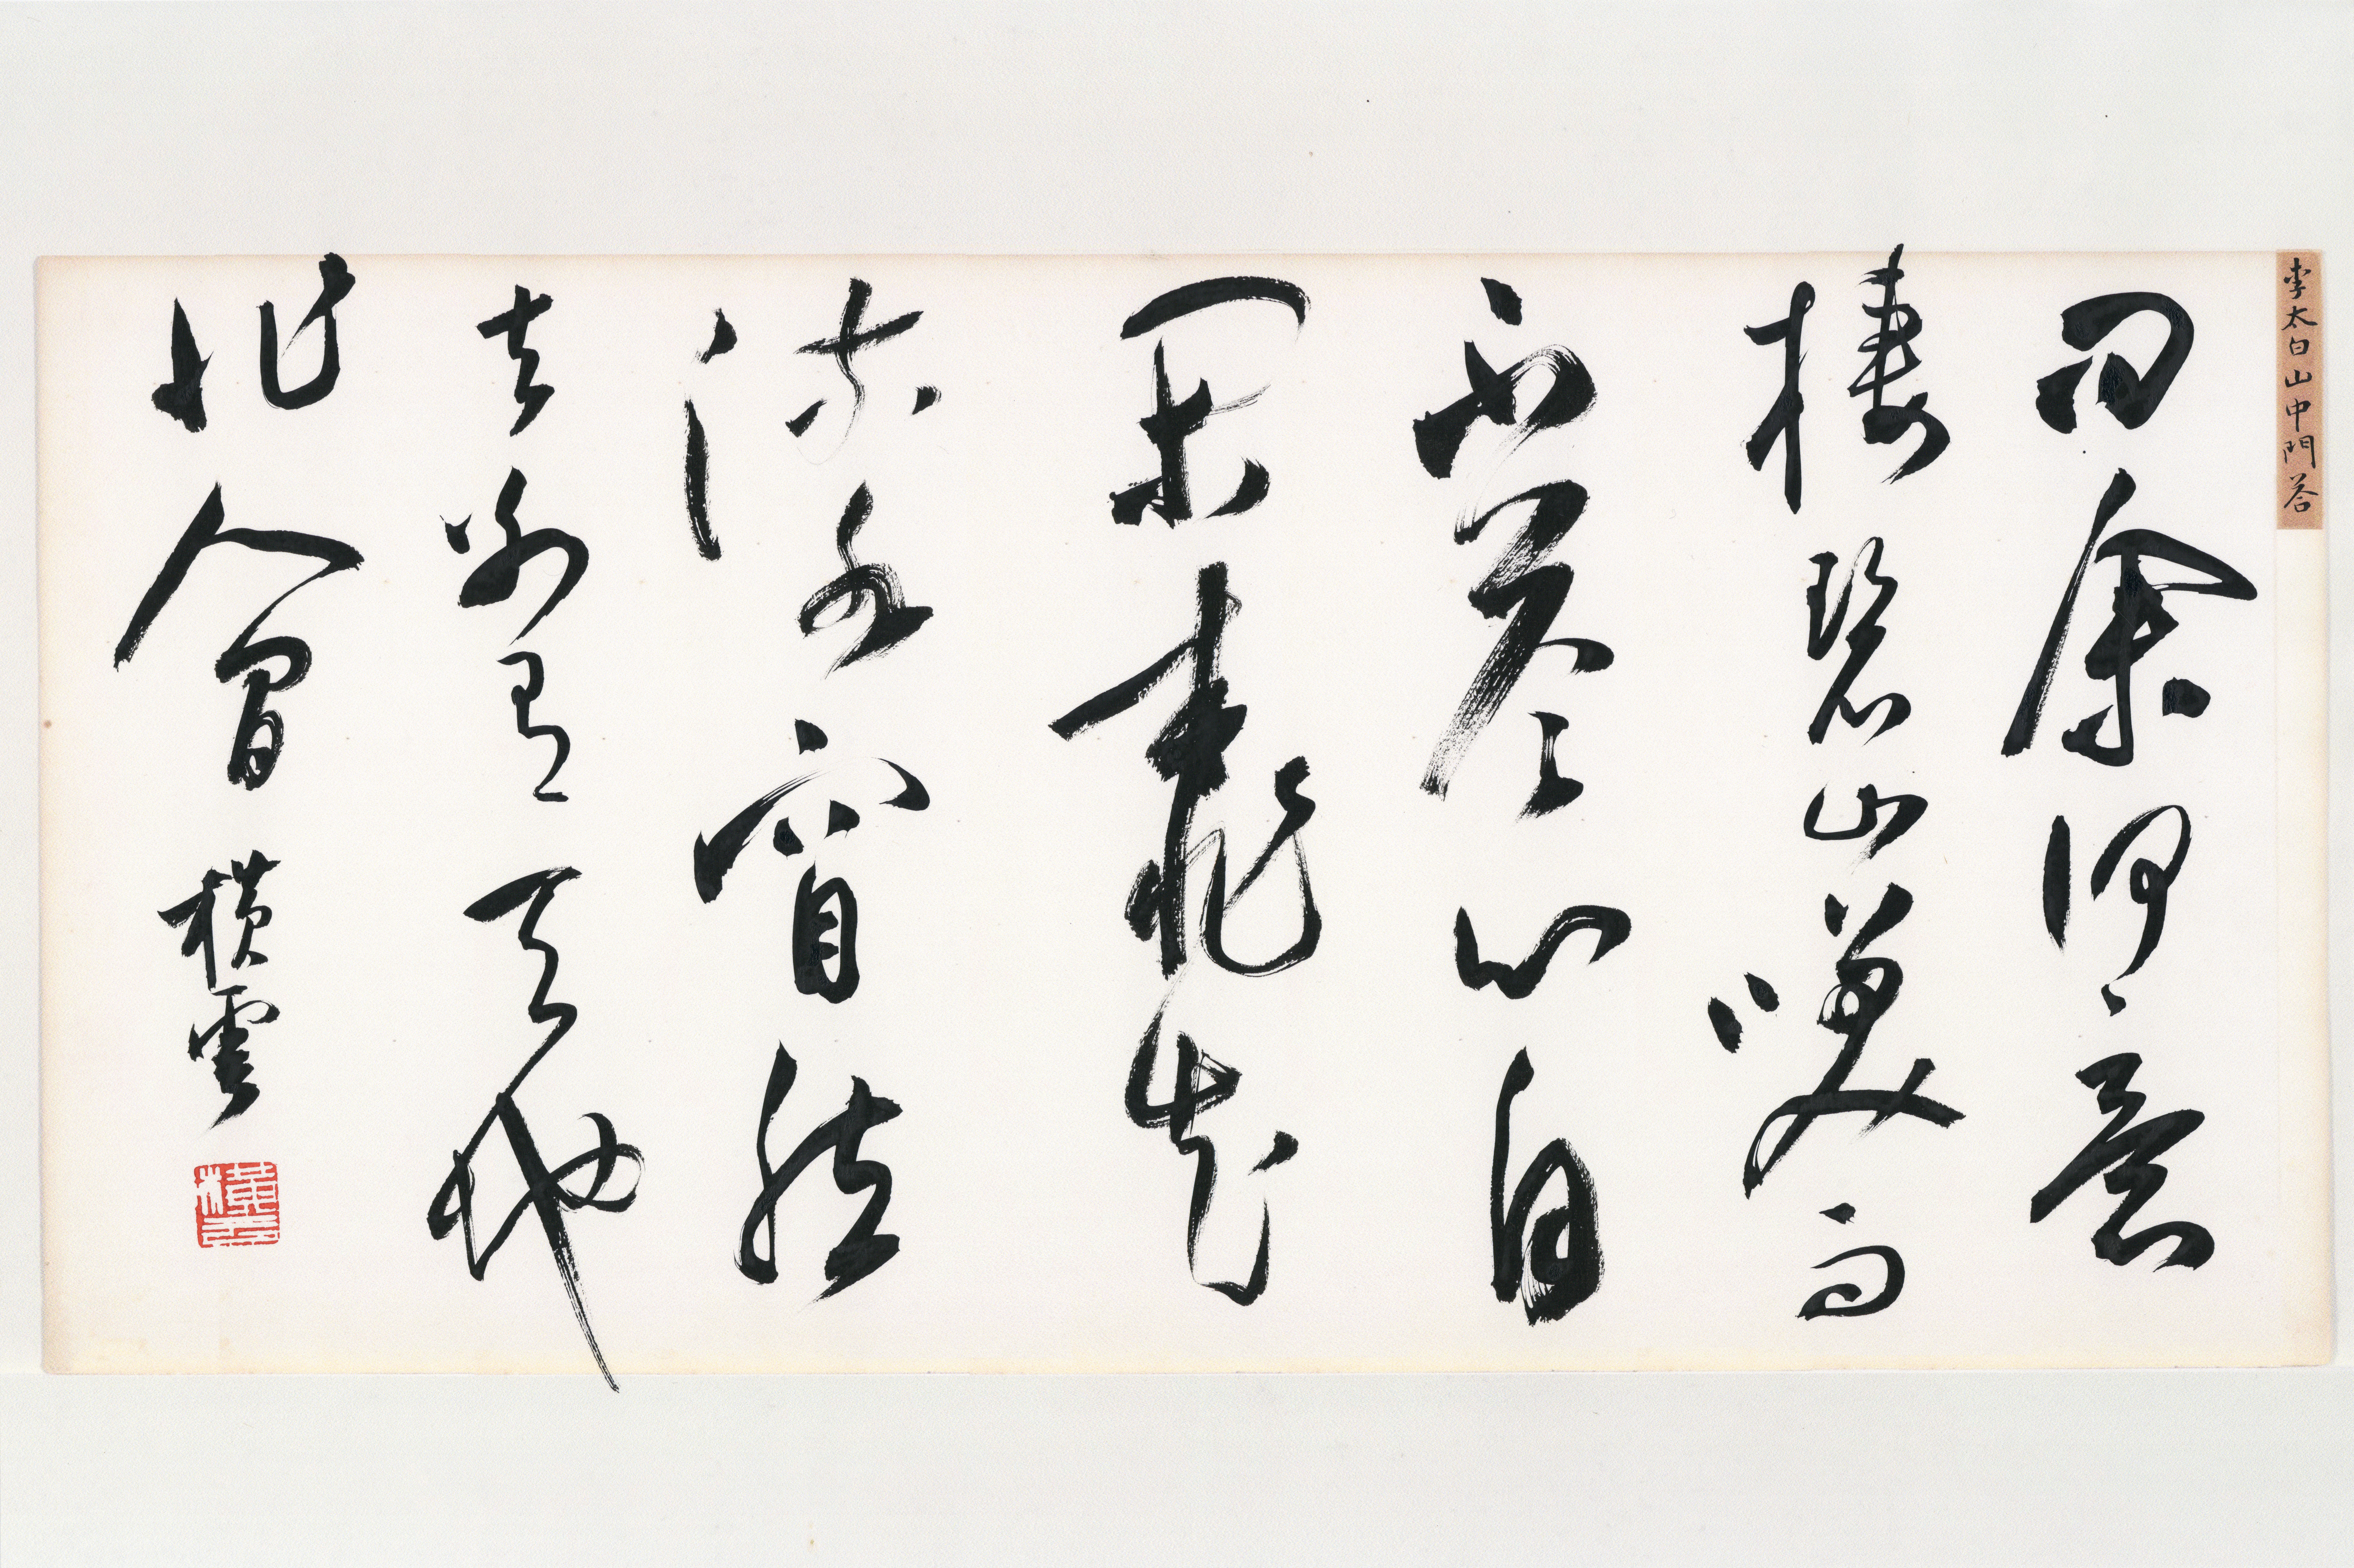 李太白山中問答
問余何意
棲碧山笑而
不答心自
閑桃花
流水窅然
去別有天地
非人間 橫雲
橫雲